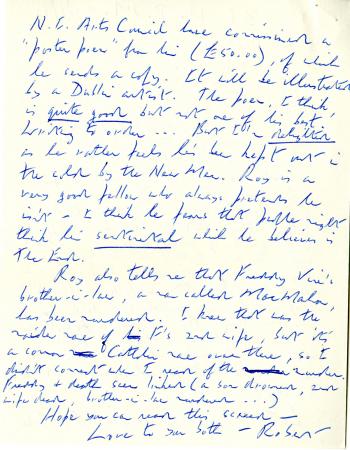 N.I. Arts Council have commissioned a
"poster poem" from him (£50.00), of which
he sends a copy. It will be illustrated
by a Dublin artist. The poem, I think
is quite good but not one of his best.
Writing to order ... But I'm delighted
as he rather feels he's been kept out in
the cold by the New Men. Roy is a
very good fellow who always pretends he
isn't – I think he fears that people might
think him sentimental while he believes in
the End.
Roy also tells me that Freddy 
brother-in-law, a man called MacMahon,
has been murdered. I knew that was the
maiden name of F's 2nd wife, but it's
a common Catholic name over there, so I
didn't connect when I read of the murder.
Freddy & death seem linked (a son drowned, 2nd
wife dead, brother-in-law murdered ...)
Hope you can read this screed –
Love to you both – Robert